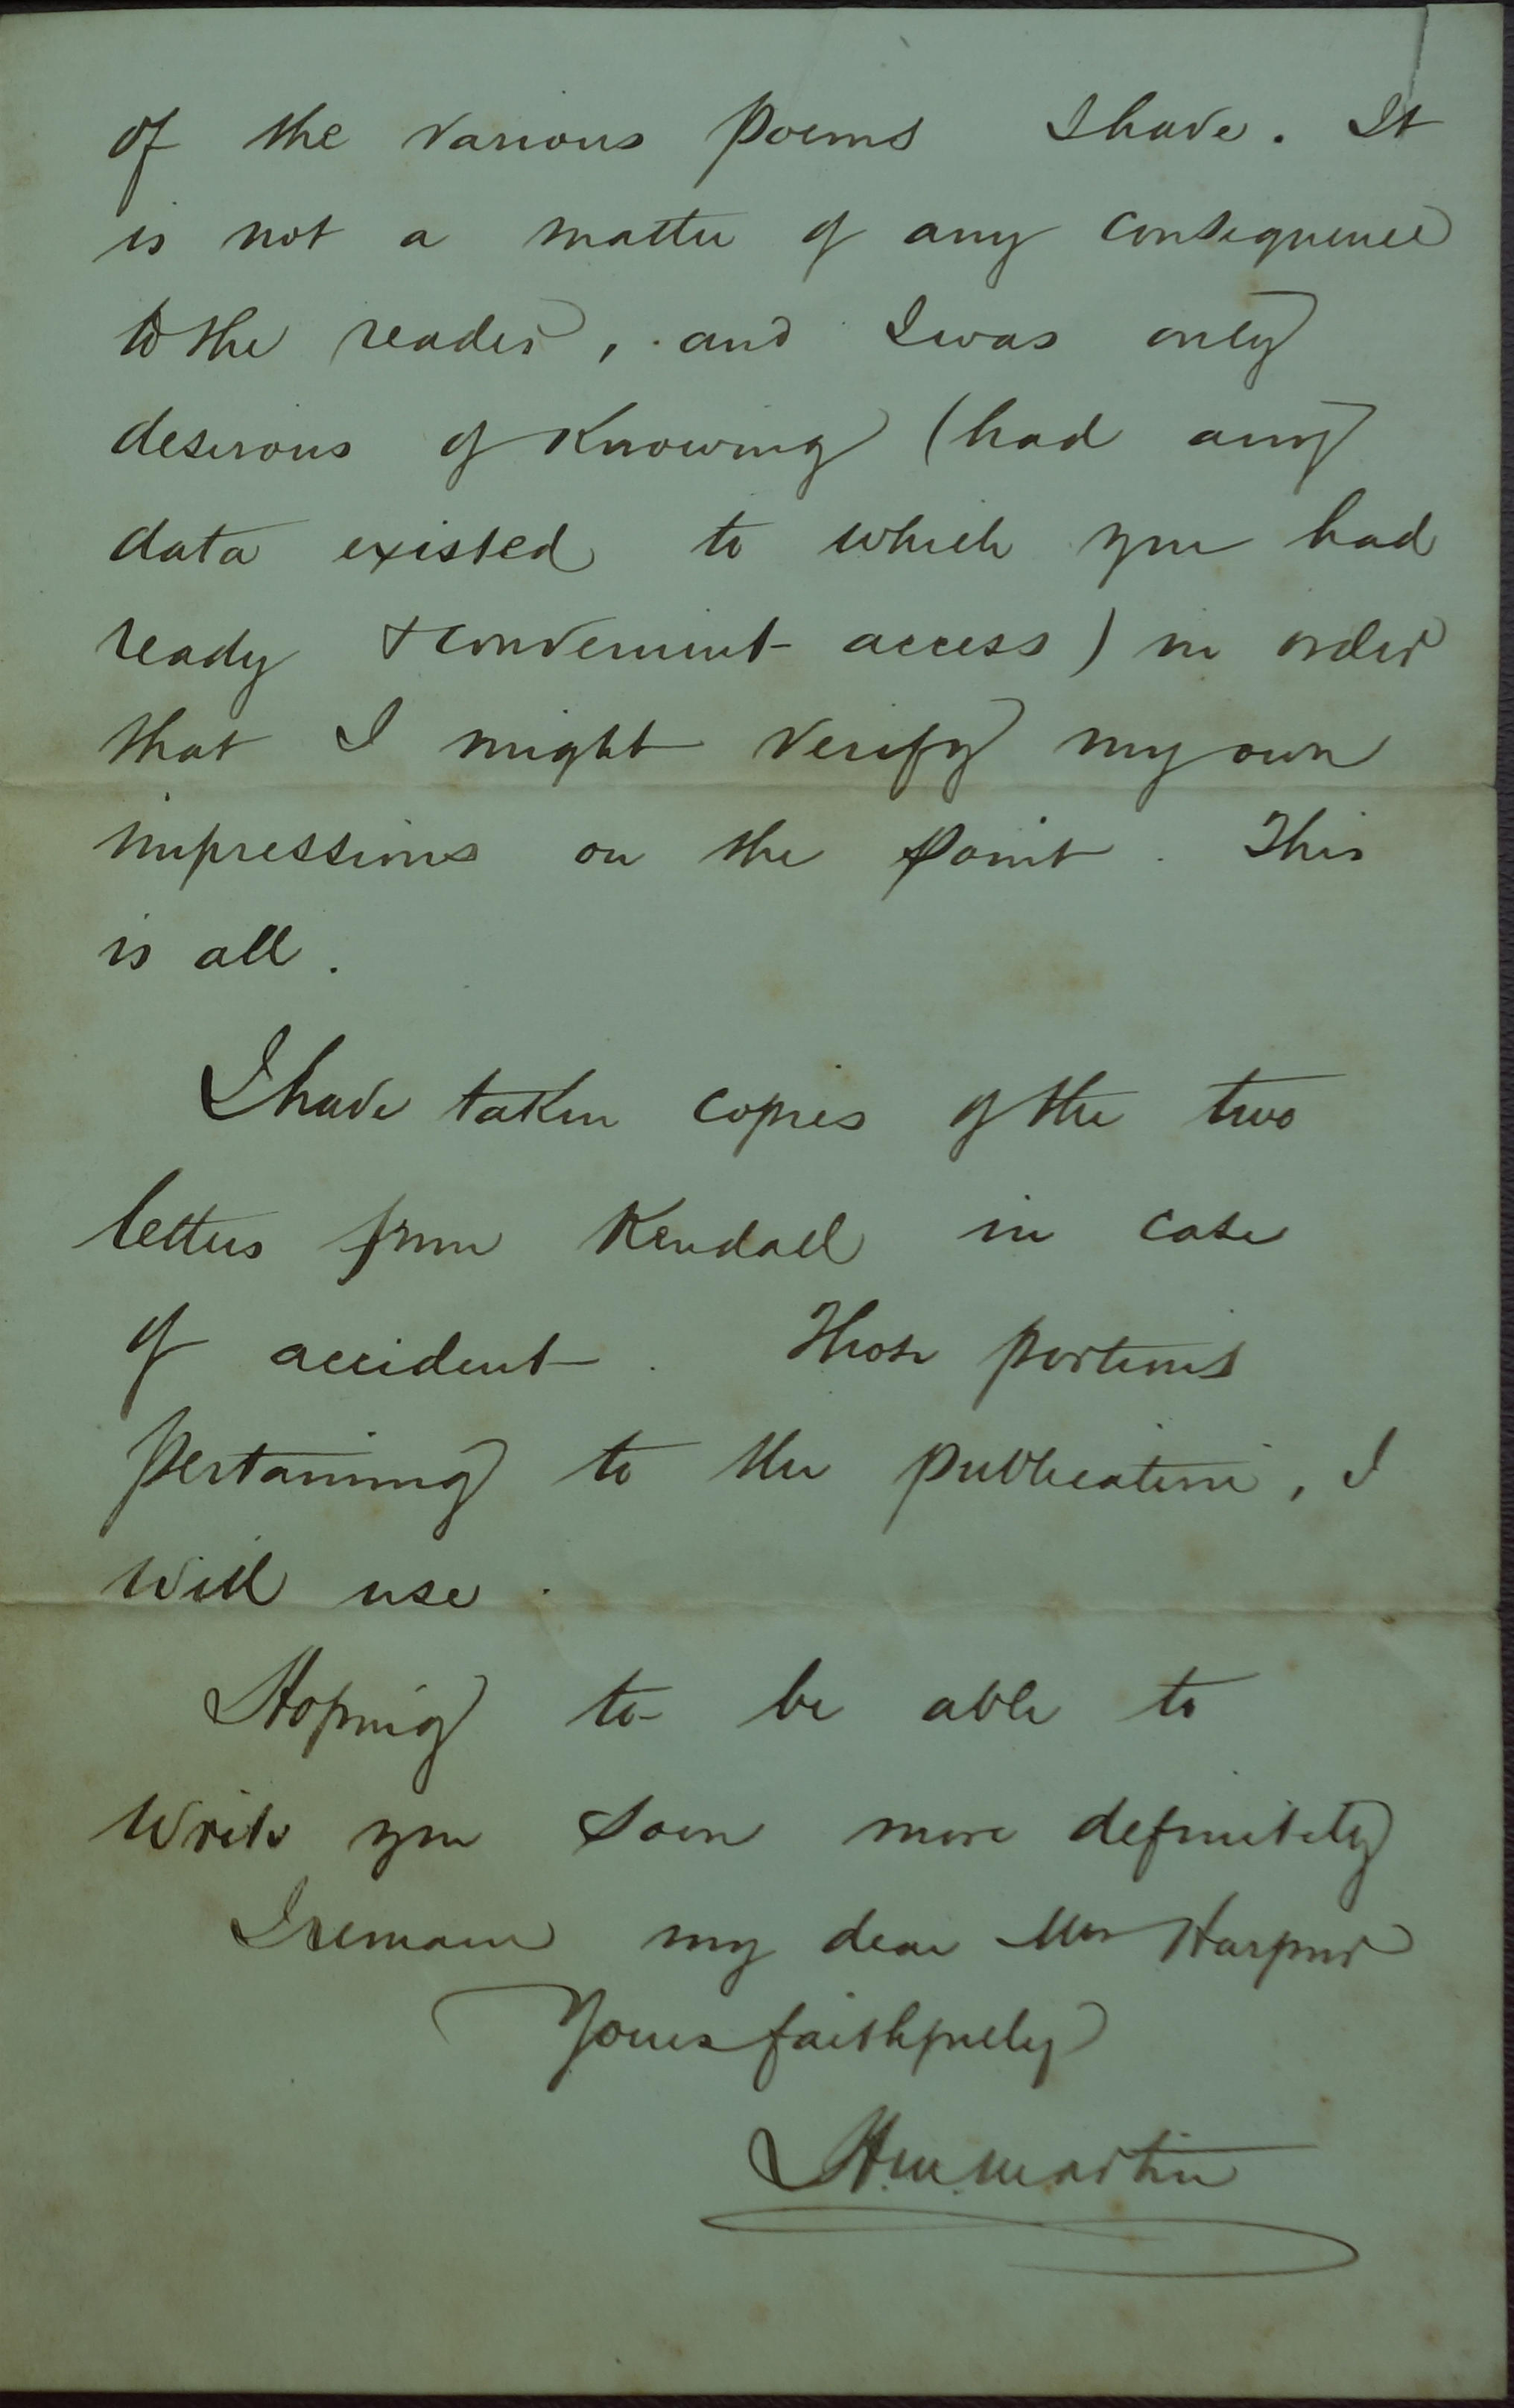 of the various poems I have. It
is not a matter of any consequence
to the reader, and I was only
desirous of knowing (had any
data existed to which you had
ready & convenient access) in order
that I might verify my own
impressions on the point. This
is all.
I have taken copies of the two
letters from Kendall in case
of accident. Those portions
pertaining to the publication, I
will use.
Hoping to be able to
write you soon more definitely
I remain my dear Mrs Harpur
Yours faithfully
H. M. Martin